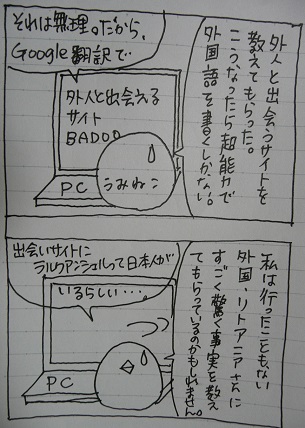 外人と出会うサイトを
教えてもらった。
こうなったら超能力で
外国語を書くしかない。
それは無理。だから、
Google翻訳で
外人と出会える
サイト
BADOO
うみねこ
PC
私は行ったこともない
外国・リトアニアさんに
すごく驚く事実を教え
てもらっているのかもしれません。
出会いサイトに
ラルクアンシェルって日本人が
いるらしい…。
PC